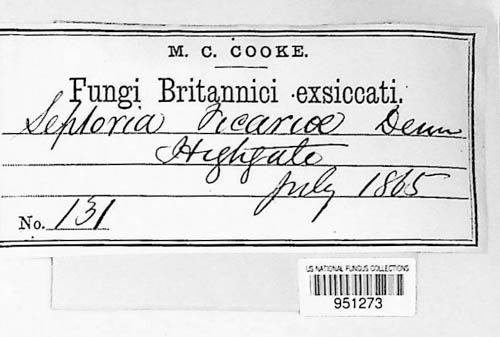 M. C. COOKE.
Fungi Britannici exsiccati.
Septoria Ficariæ Desm
Highgate
July 1865
No. 131
US NATIONAL FUNGUS COLLECTIONS
951273